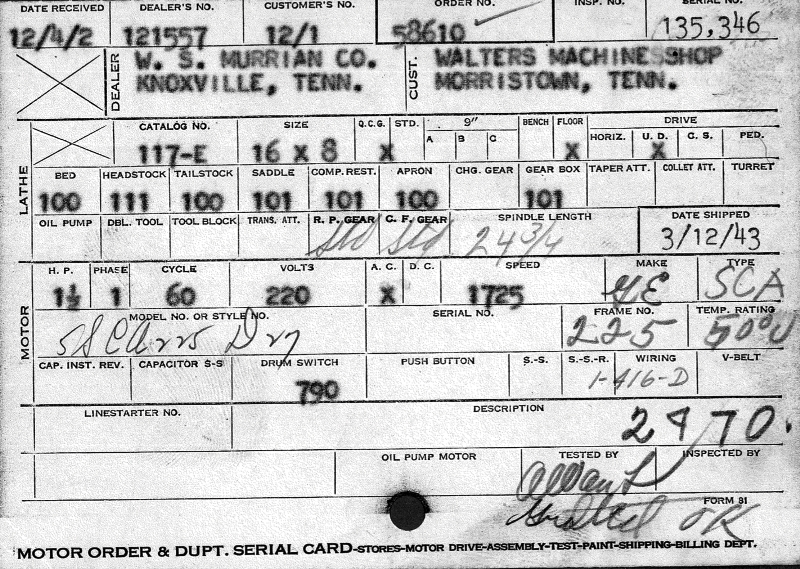 DATE RECEIVED DEALER'S NO. CUSTOMER'S NO. ORDER NO. INSP. NO. SERIAL NO.
12/4/2 121557 12/1 58610 135,346
DEALER W. S. MURRIAN CO. CUST. WALTERS MACHINE SHOP
KNOXVILLE, TENN. MORRISTOWN, TENN.
LATHE
CATALOG NO. SIZE Q.C.G. STD. 9" BENCH FLOOR DRIVE
A B C HORIZ. U. D. C. S. PED.
117-E 16 x 8 X X X
BED HEADSTOCK TAILSTOCK SADDLE COMP. REST. APRON CHG. GEAR GEAR BOX TAPER ATT. COLLET ATT. TURRET
100 111 100 101 101 100 101
OIL PUMP DBL. TOOL TOOL BLOCK TRANS. ATT. R. P. GEAR C. F. GEAR SPINDLE LENGTH DATE SHIPPED
Std Std 24 3/4 3/12/43
MOTOR
H. P. PHASE CYCLE VOLTS A. C. D. C. SPEED MAKE TYPE
1½ 1 60 220 X 1725 GE SCA
MODEL NO. OR STYLE NO. SERIAL NO. FRAME NO. TEMP. RATING
225
CAP. INST. REV. CAPACITOR S-S DRUM SWITCH PUSH BUTTON S.-S. S.-S.-R. WIRING V-BELT
790 1-416-D
LINESTARTER NO. DESCRIPTION
2970.
OIL PUMP MOTOR TESTED BY INSPECTED BY
OK
FORM 81
MOTOR ORDER & DUPT. SERIAL CARD-STORES-MOTOR DRIVE-ASSEMBLY-TEST-PAINT-SHIPPING-BILLING DEPT.